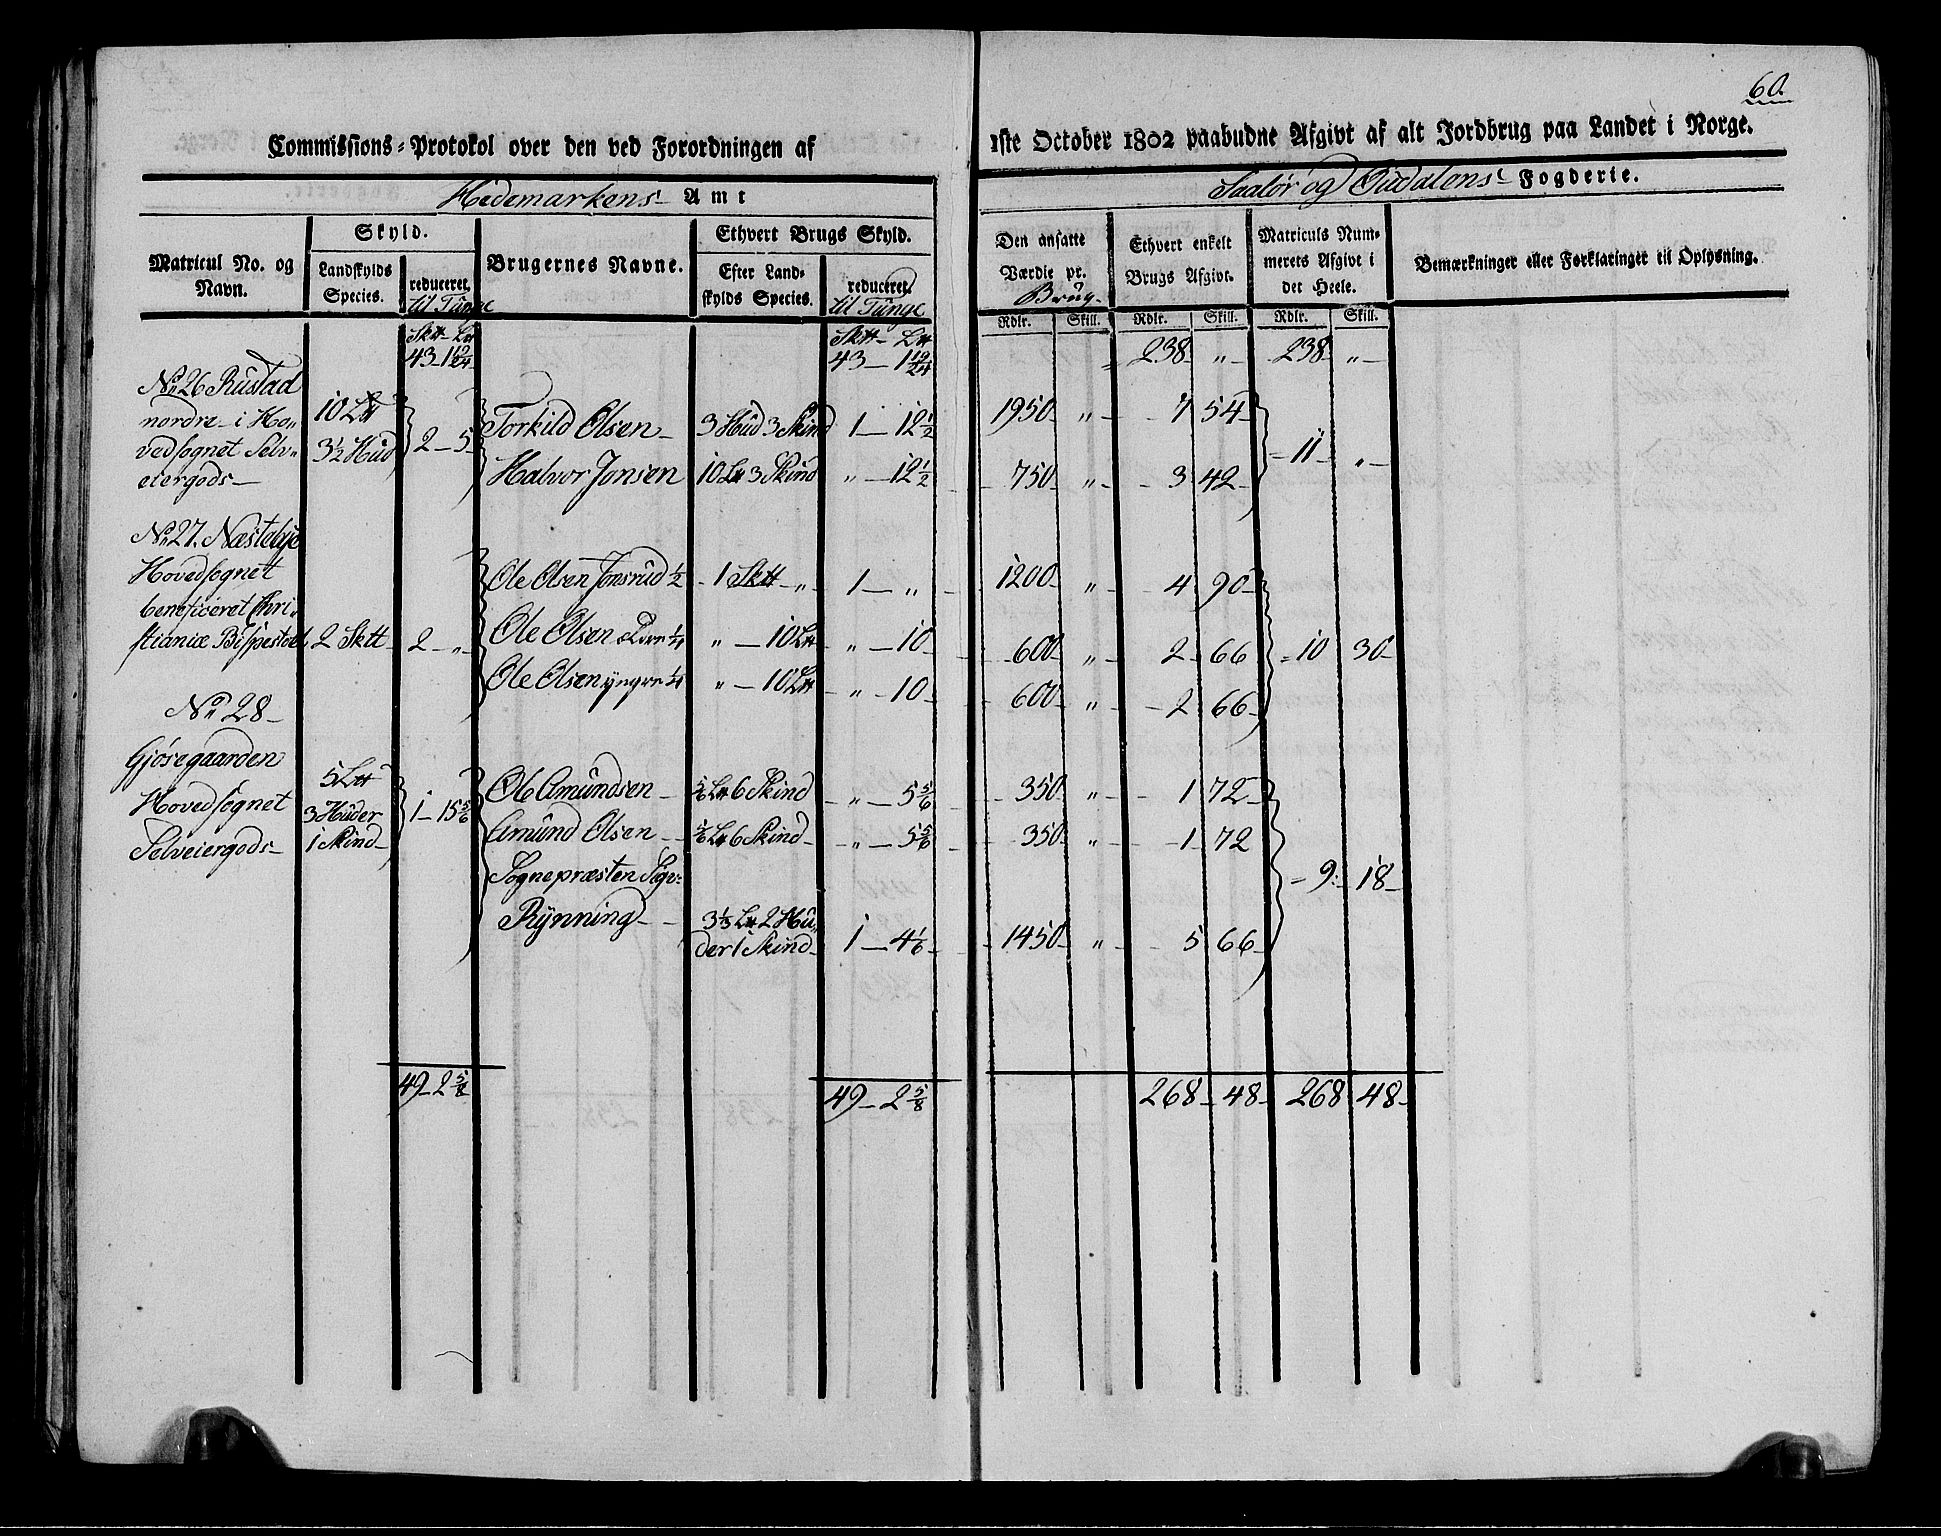 60.
Commissions-Protokol over den ved Forordningen af 1ste October 1802 paabudne Afgivt af alt Jordbrug paa Landet i Norge.
Hedemarkens Amt
Soelør og Oudalens Fogderie.
Matricul No. og Navn.
Skyld.
Landskylds Species.
reduceret til Tunge
Brugernes Navne.
Ethvert Brugs Skyld.
Efter Landskylds Species.
reduceret til Tunge
Den ansatte Værdie pr. Brug.
Ethvert enkelt Brugs Afgivt.
Matriculs Nummerets Afgivt i det Heele.
Bemærkninger eller Forklaringer til Oplysning.
Rdlr. Skill. Rdlr. Skill. Rdlr. Skill.
Sktt - Ltt Sktt - Ltt
43 - 1 19/24 43 - 1 19/24 238 - „ - 238 - „ -
No 26 Rustad
nordre - i Ho-
vedsognet Selv-
eiergods -
10 Ltt
3 1/2 Hud
2 - 5
Torkild Olsen - 3 Hud 3 Skind 1 - 12 1/2 1950 - „ - 7 54 -
Halvor Jonsen 10 Ltt 3 Skind „ - 12 1/2 750 - „ - 3 42 -
= 11 - „ -
No 27. Næstebye
Hovedsognet
beneficeret Chri-
stianiæ Bispestoel
2 Sktt - 2 - „ -
Ole Olsen Jonsrud 1/2 - 1 Sktt - „ 1 - „ - 1200 - „ - 4 90 -
Ole Olsen eldre 1/4 „ - 10 Ltt „ - 10 - 600 - „ - 2 66
Ole Olsen yngre 1/4 „ - 10 Ltt „ - 10 - 600 - „ - 2 66 -
= 10 30 -
No 28 -
Gjøsegaarden
Hovedsognet
Selveiergods -
5 Ltt
3 Huder
1 Skind -
1 - 15 5/6
Ole Amundsen - 5/6 Ltt 6 Skind - „ - 5 5/6 350 - „ - 1 72 -
Amund Olsen - 5/6 Ltt 6 Skind - - „ - 5 5/6 350 - „ - 1 72
Sognepræsten Sigv:
Rynning - 3 1/3 Ltt 2 Hu-
der 1 Skind - 1 - 4 1/6 1450 - „ - 5 66 -
= 9: 18 -
49 - 2 5/8 49 - 2 5/8 268 - 48 - 268 48 -